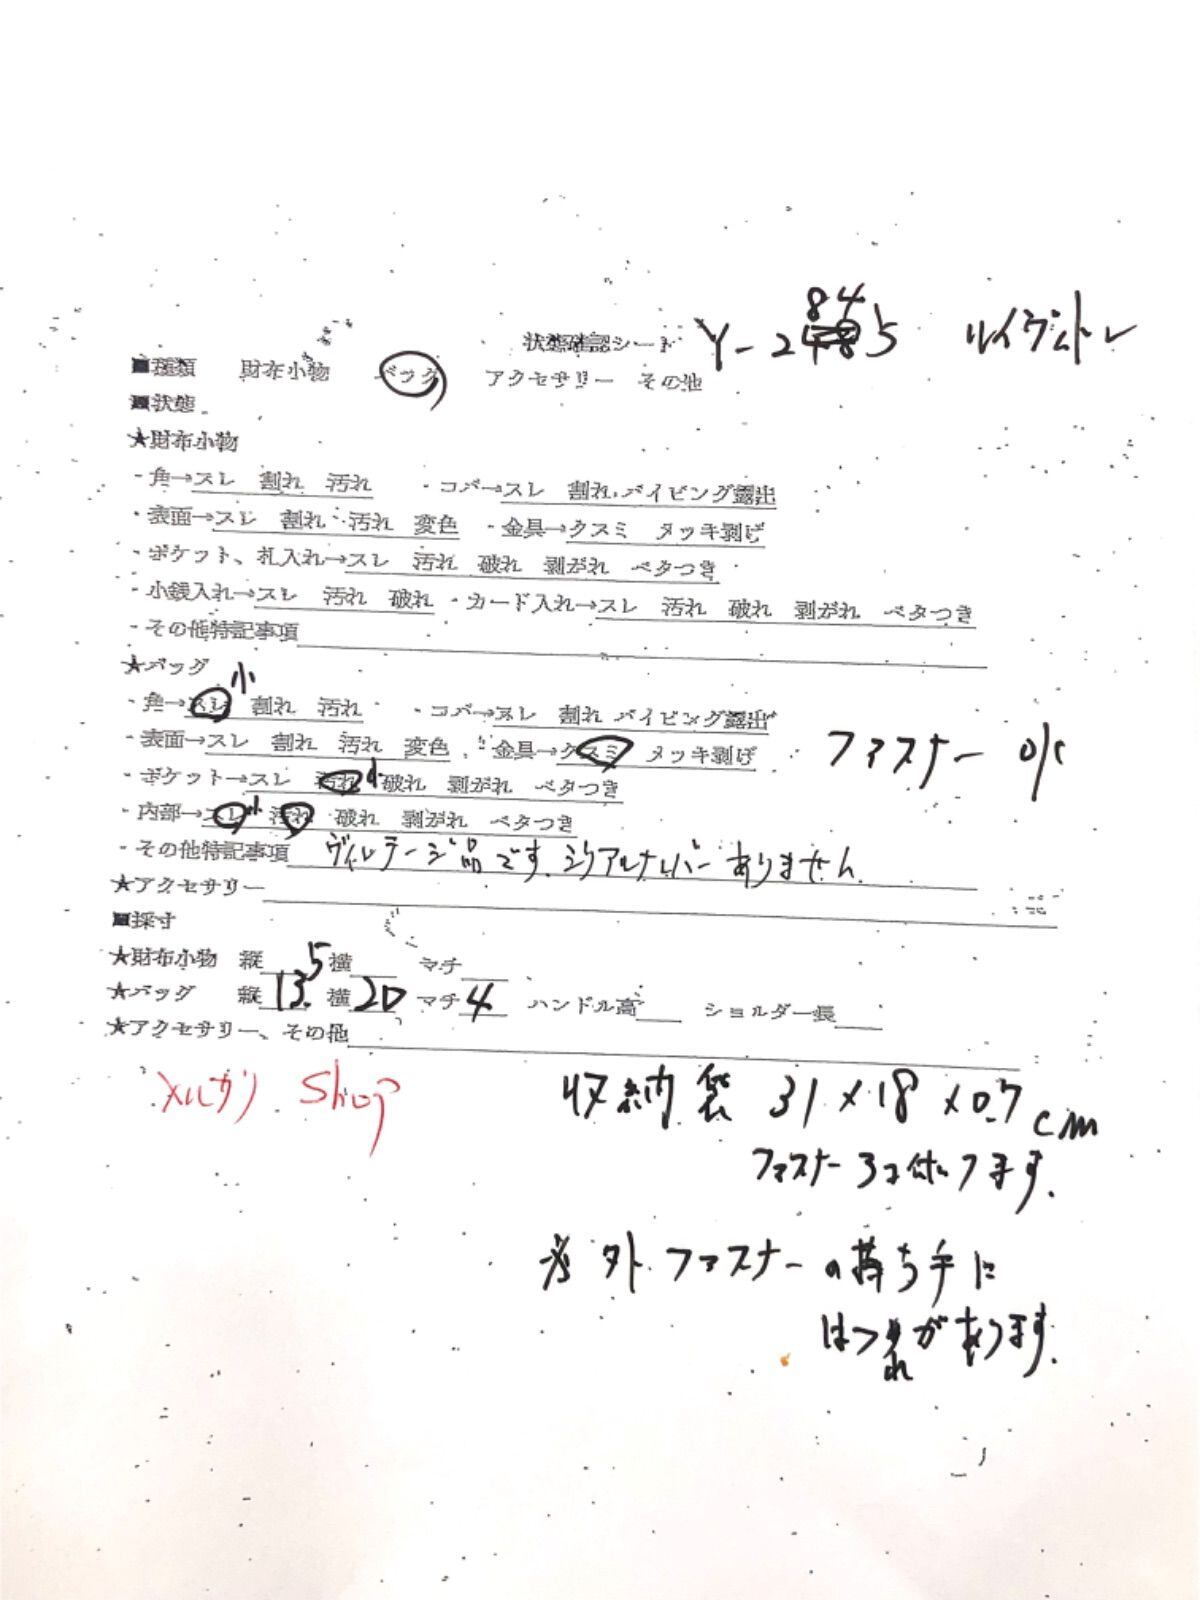 状態確認シート Y-2845 ルイヴィトン
■種類 財布小物 バッグ アクセサリー その他
■状態
★財布小物
・角→スレ 割れ 汚れ ・コバ→スレ 割れ パイピング露出
・表面→スレ 割れ 汚れ 変色 ・金具→クスミ メッキ剥げ
・ポケット、札入れ→スレ 汚れ 破れ 剥がれ ベタつき
・小銭入れ→スレ 汚れ 破れ ・カード入れ→スレ 汚れ 破れ 剥がれ ベタつき
・その他特記事項
★バッグ
・角→スレ小 割れ 汚れ ・コバ→スレ 割れ パイピング露出
・表面→スレ 割れ 汚れ 変色 ・金具→クスミ メッキ剥げ ファスナー OK
・ポケット→スレ 汚れ小 破れ 剥がれ ベタつき
・内部→スレ小 汚れ 破れ 剥がれ ベタつき
・その他特記事項 ヴィンテージ品です。シリアルナンバーありません
★アクセサリー
■採寸
★財布小物 縦 横 マチ
★バッグ 縦13.5 横20 マチ4 ハンドル高 ショルダー長
★アクセサリー、その他
メルカリ Shop
収納袋 31×18×0.7cm
ファスナー3コ付いてます。
※外ファスナーの持ち手に
ほつれがあります。